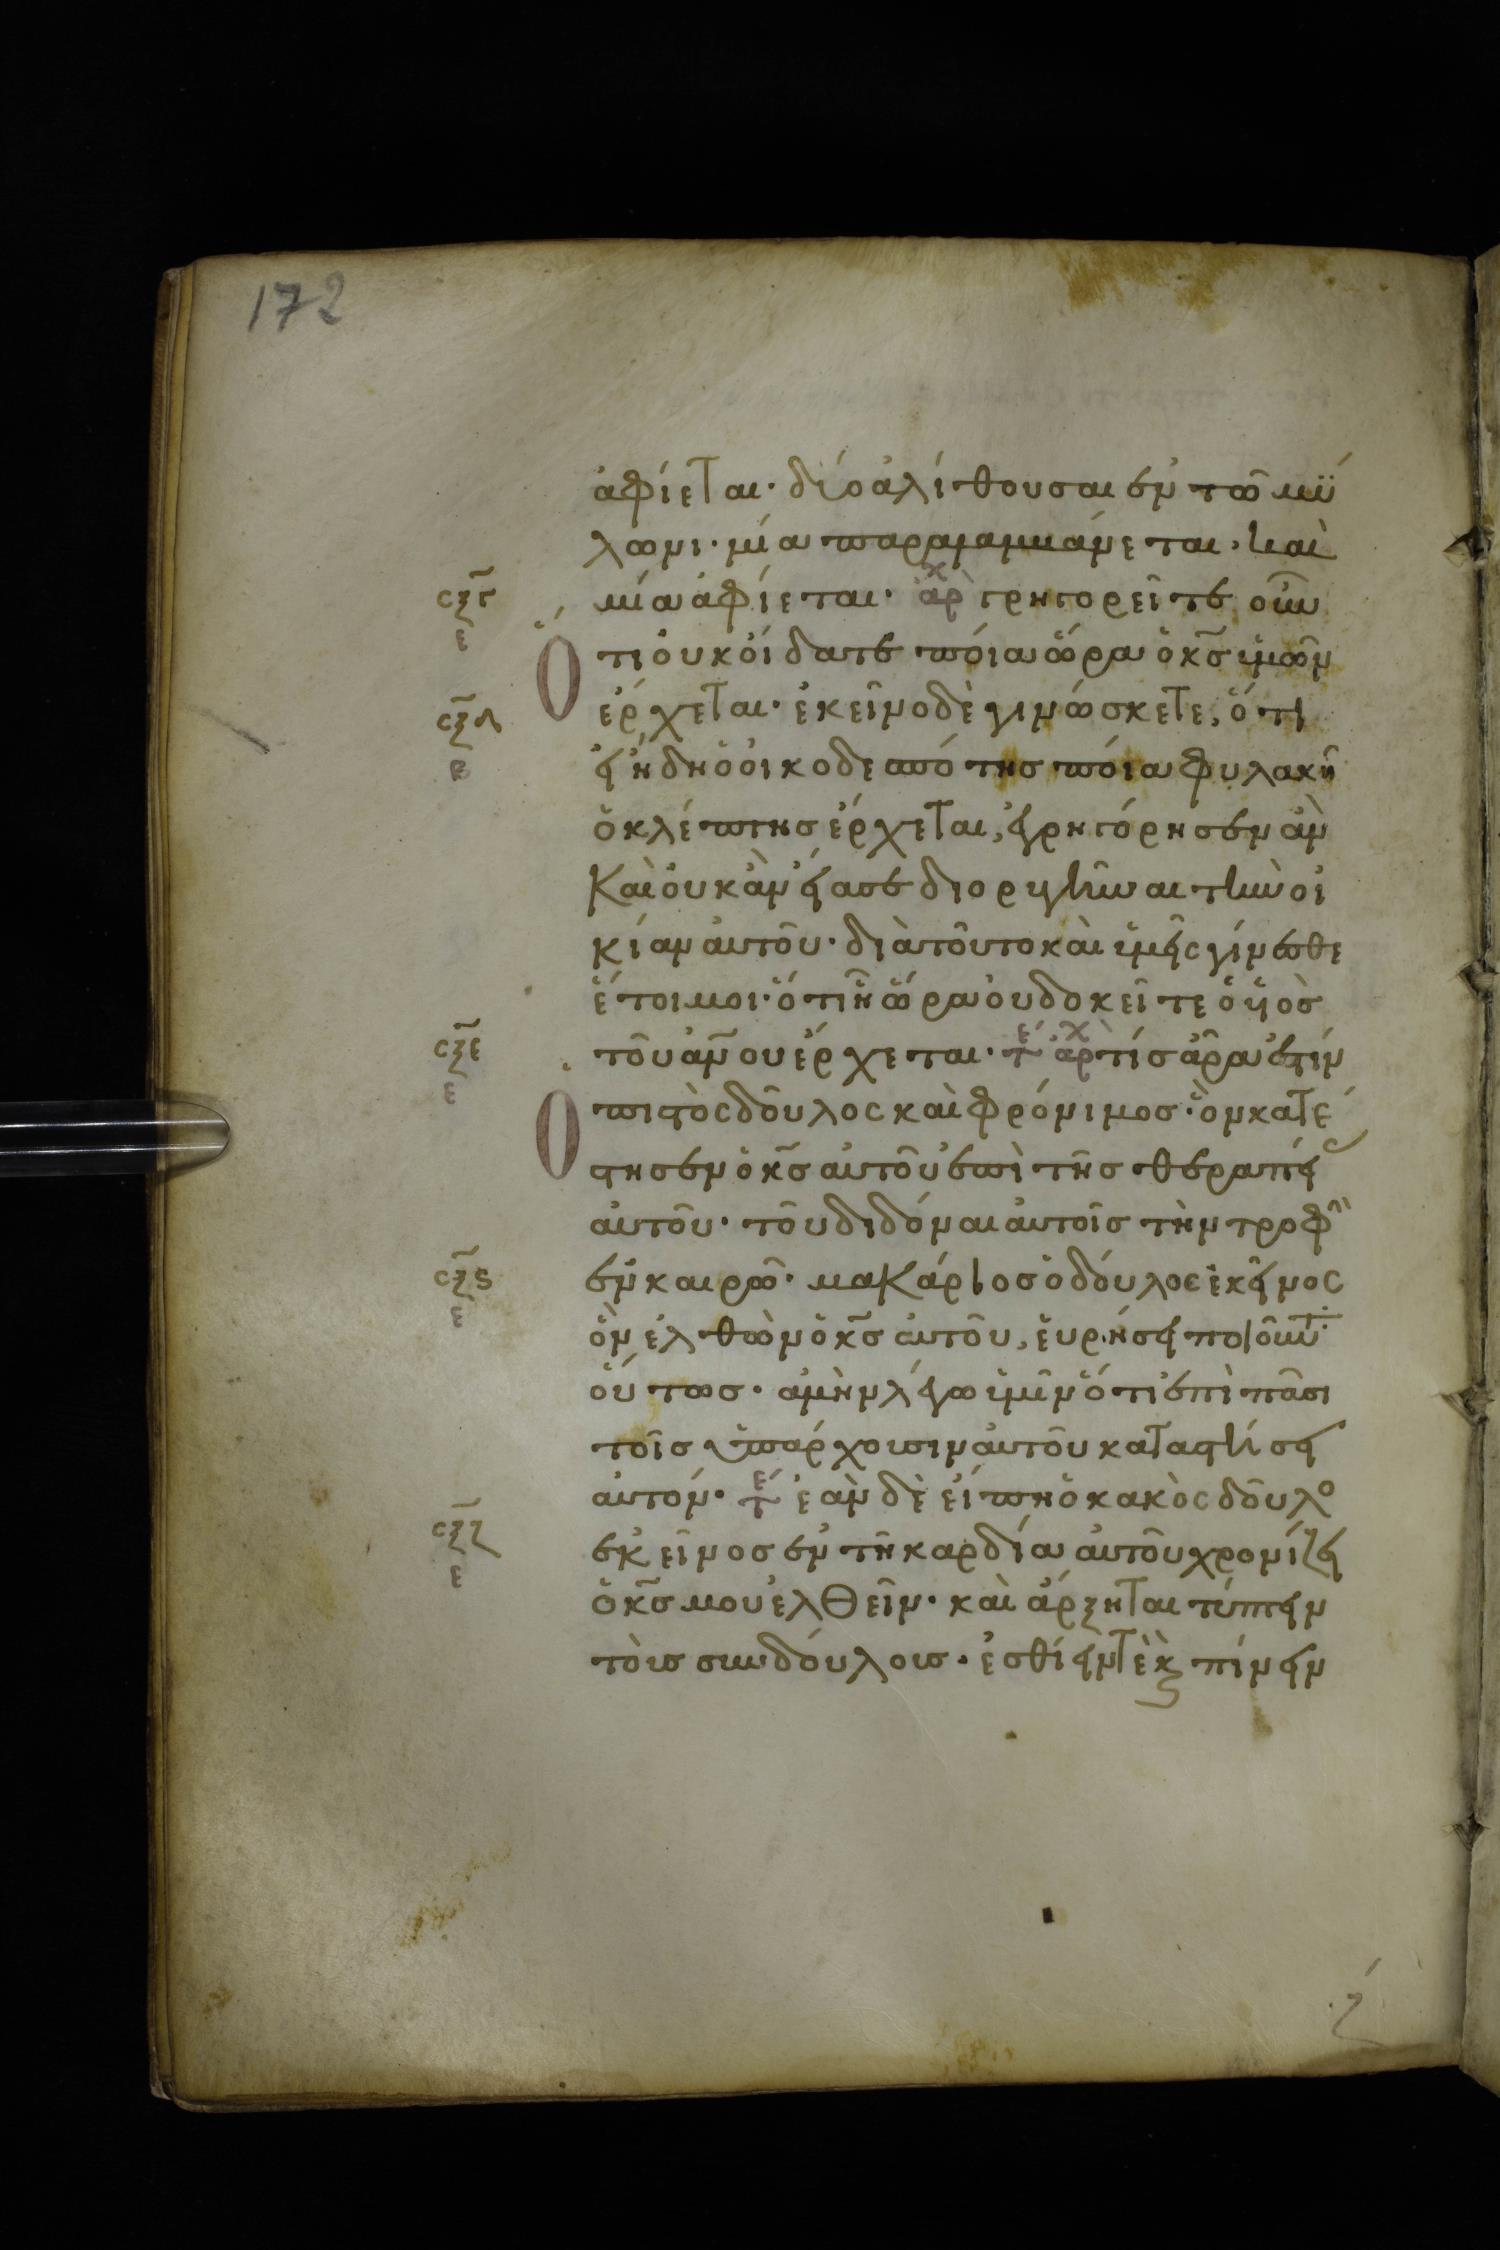 172
ἀφίεται· δύο ἀλίθουσαι ἐν τῶ μύ
λωνι· μία παραλαμβάνεται· καὶ
σξγ μία ἀφίεται· ἀρχ γρηγορεῖτε οὖν
ε Ὅτι οὐκ οἴδατε ποία ὥρα ὁ κς ὑμῶν
σξδ ἔρχεται· ἐκεῖνο δὲ γινώσκετε, ὅτι
β εἰ ἤδη ὁ οἰκοδεσπότης ποία φυλακῆ
ὁ κλέπτης ἔρχεται, ἐγρηγόρησεν ἂν
Καὶ οὐκ ἂν εἴασε διορυγῆναι τὴν οἰ
κίαν αὐτοῦ· διὰ τοῦτο καὶ ὑμεῖς γίνεσθε
ἕτοιμοι· ὅτι ἧ ὥρα οὐ δοκεῖτε ὁ υἱὸς
σξε τοῦ ἀνου ἔρχεται· τε ἀρχ τίς ἄρα ἐστὶν
ε Ὁ πιστὸς δοῦλος καὶ φρόνιμος· ὃν κατέ
στησεν ὁ κς αὐτοῦ ἐπὶ τῆς θεραπείας
αὐτοῦ· τοῦ διδόναι αὐτοῖς τὴν τροφὴν
σξς ἐν καιρῶ· μακάριος ὁ δοῦλος ἐκεῖνος
ε ὃν ἐλθὼν ὁ κς αὐτοῦ, εὑρήσει ποιοῦντ
οὕτως· ἀμὴν λέγω ὑμῖν ὅτι ἐπὶ πᾶσι
τοῖς ὑπάρχουσιν αὐτοῦ καταστήσει
αὐτόν· τε ἐὰν δὲ εἴπη ὁ κακὸς δοῦλο
σξζ ς ἐκεῖνος ἐν τῆ καρδία αὐτοῦ χρονίζει
ε ὁ κς μου ἐλθεῖν· καὶ ἄρξηται τύπτειν
τοὺς συνδούλους· ἐσθίειν τὲ κ πίνειν